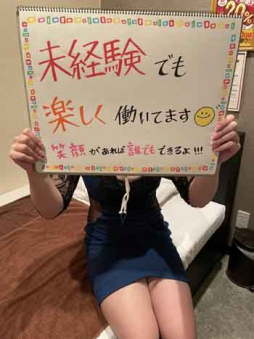 未経験でも
楽しく 働いてます
笑顔があれば誰でもできるよ!!!
20%